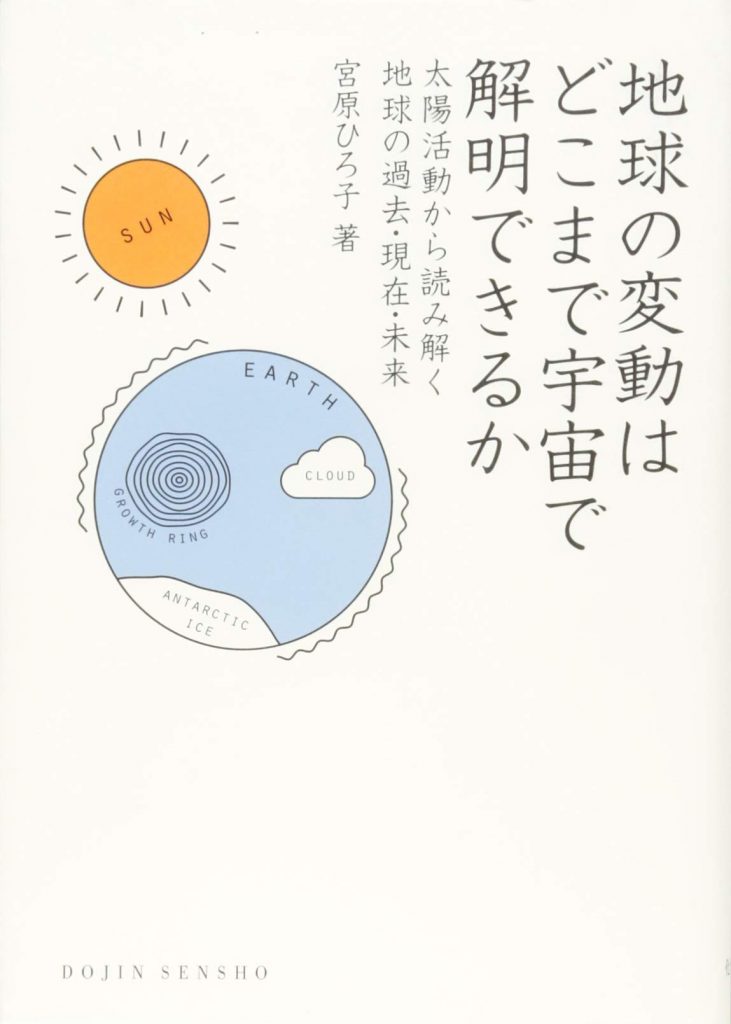 地球の変動は
どこまで宇宙で
解明できるか
太陽活動から読み解く
地球の過去・現在・未来
宮原ひろ子 著
SUN
EARTH
CLOUD
GROWTH RING
ANTARCTIC
ICE
DOJIN SENSHO